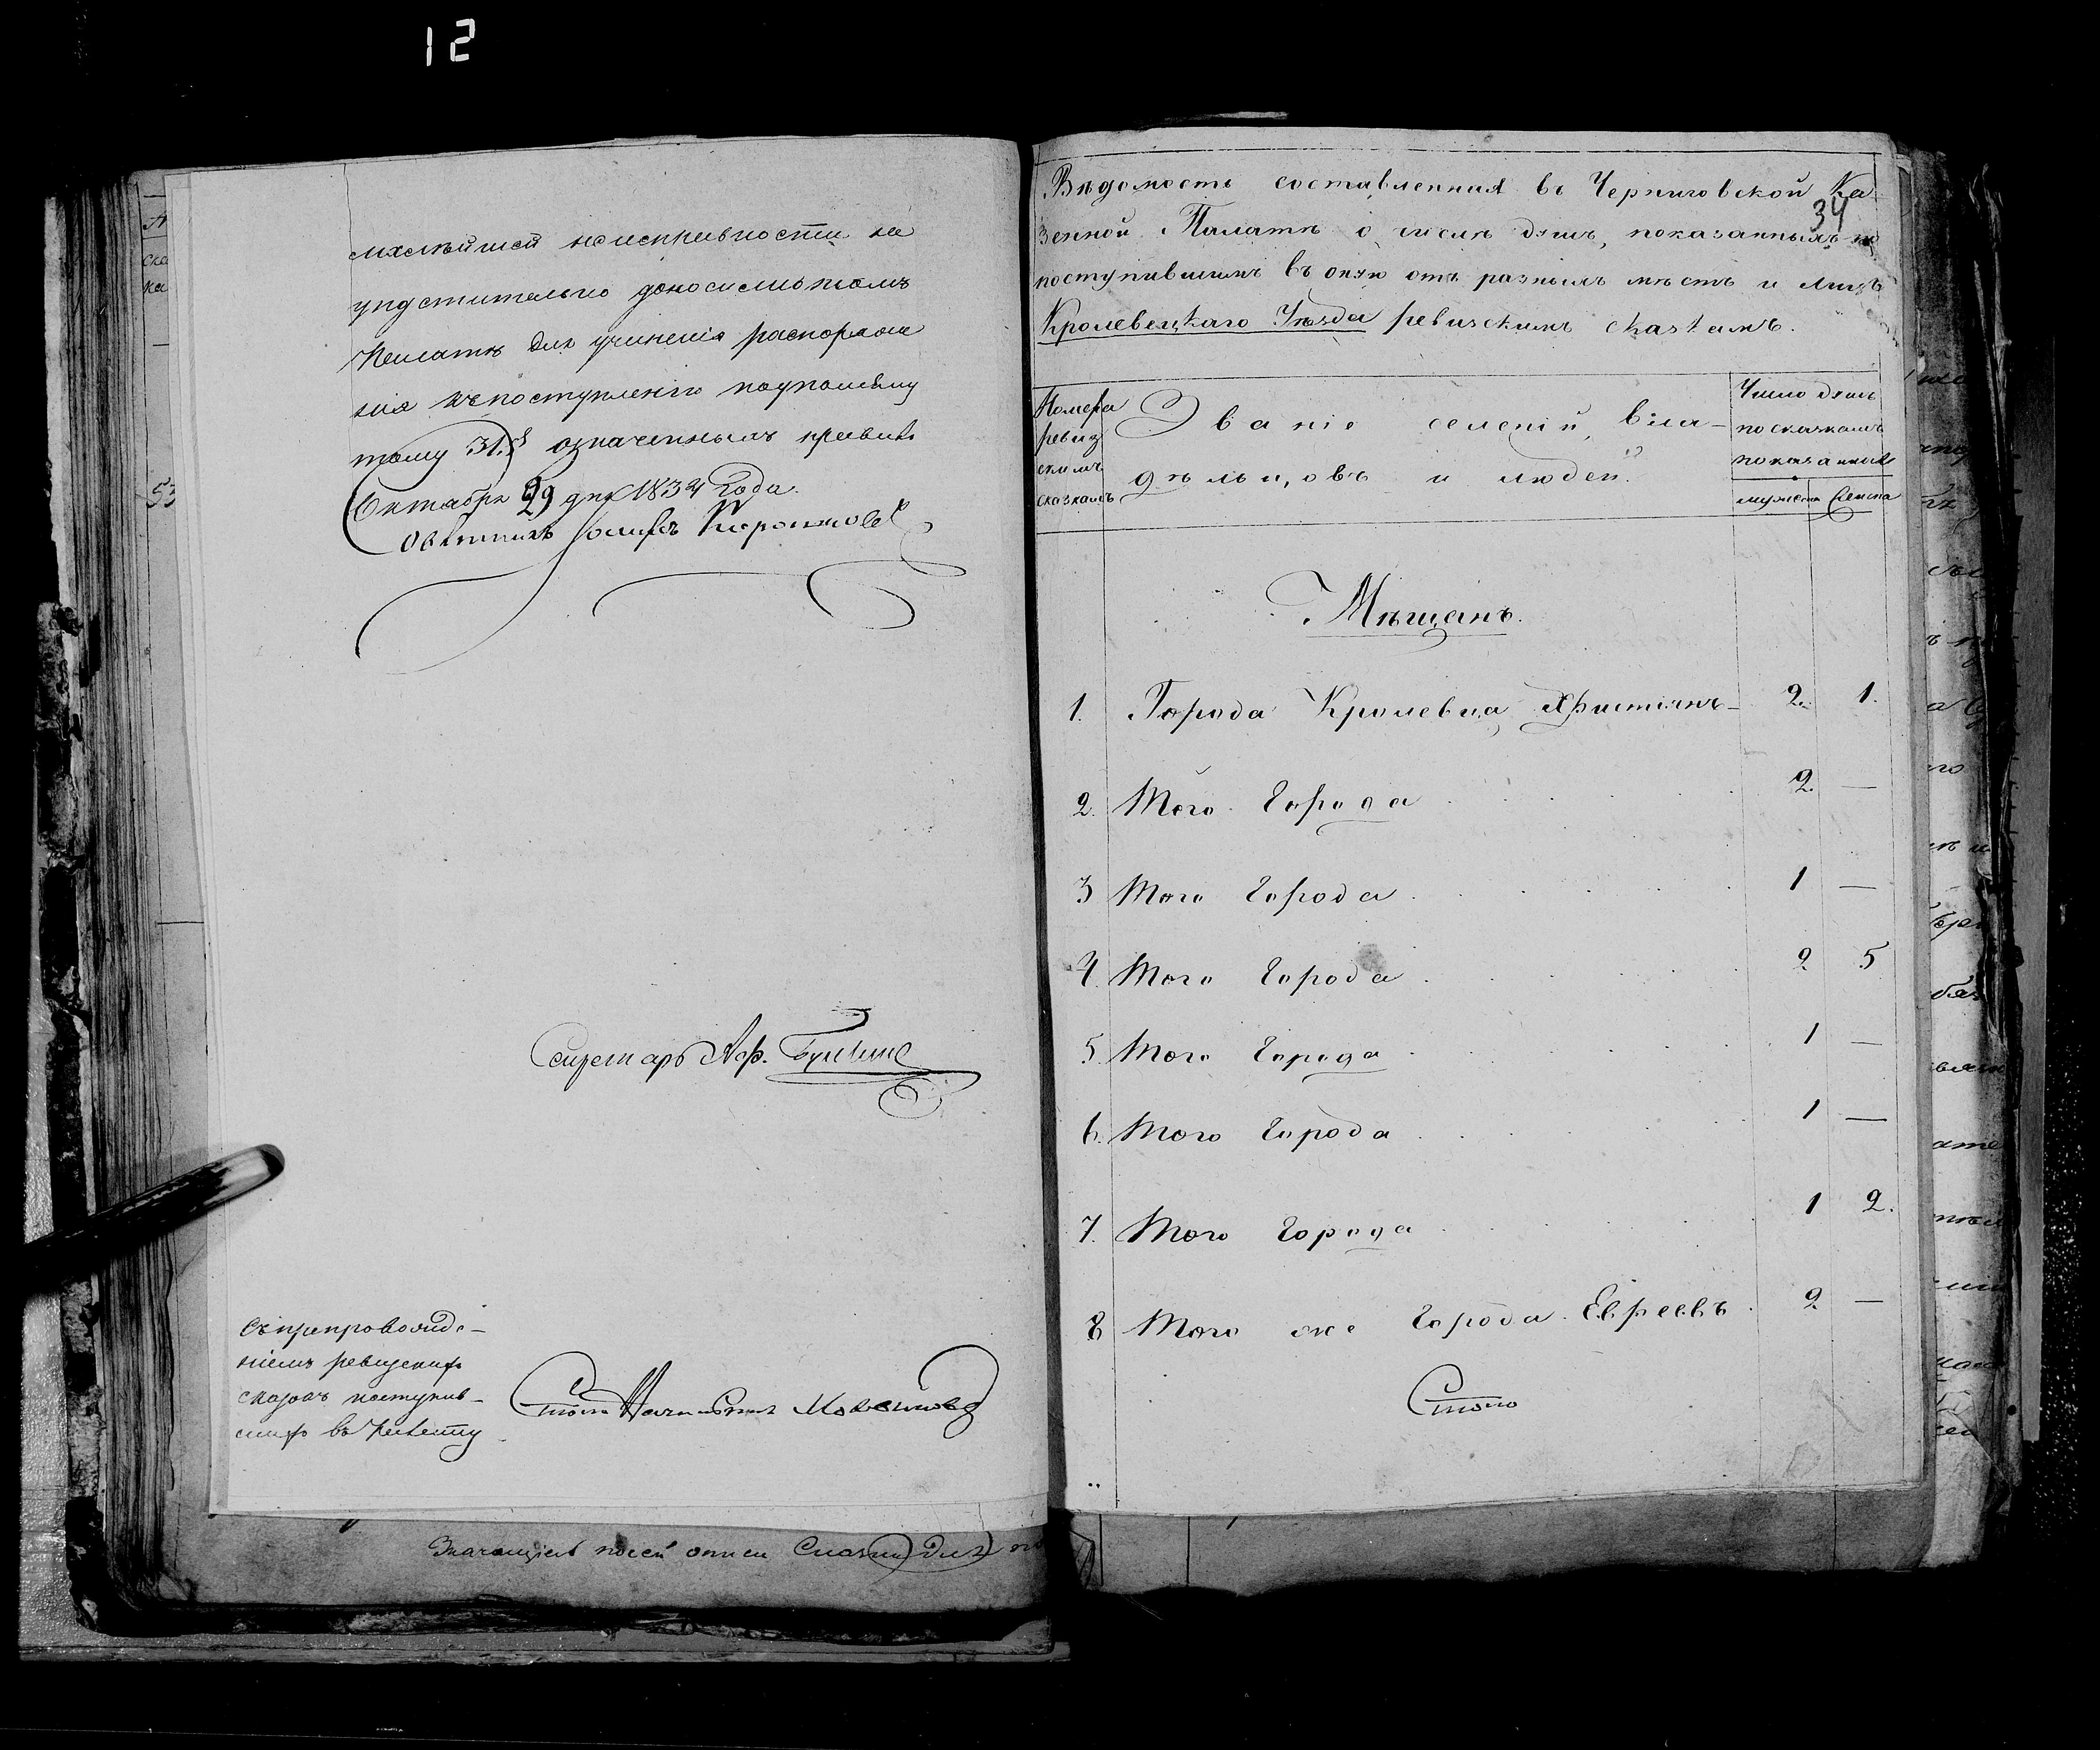 12
малѣйшей неисправности не
упустительно доносило
Палатѣ для учиненія распоряже
нія
тому 31. означенныхъ
Октабря 29 дня 1834 Года.
Совѣтникъ
Секретарь Аф.
Съпрепровожде-
ніемъ ревизскихъ
сказокъ поступив-
шихъ въ Палату
Столоначальникъ
Значащіеся посей описи Сказки для
34
Вѣдомость составленная въ Черниговской Ка
зенной Палатѣ о числѣ душъ, показанныхъ по
поступившимъ въ оную отъ разныхъ мѣстъ и лицъ
Кролевецкаго Уѣзда ревизскимъ сказкамъ.
Номера
ревиз
скимъ
сказкамъ
Званіе селеній, вла-
дѣльцовъ и людей.
Число душъ
по сказкамъ
показанные
мужеска
женска
Мѣщанъ.
1. Города Кролевца, Христіянъ 2. 1.
2. Того города 2. —
3 Того города 1 —
4. Того города 2 5
5. Того города 1 —
6. Того города 1 —
7. Того города 1 2.
8 Того же города Евреевъ 2. —
Столо